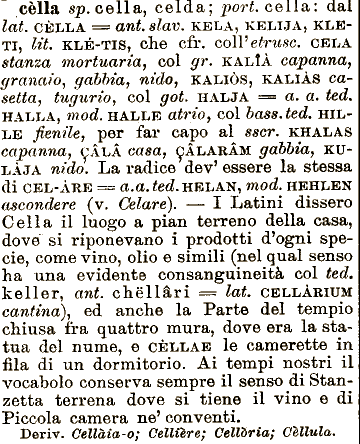 cèlla sp. cella, celda; port. cella: dal
lat. CÈLLA = ant. slav. KELA, KELIJA, KLE-
TI, lit. KLÉ-TIS, che cfr. coll'etrusc. CELA
stanza mortuaria, col gr. KALÎÀ capanna,
granaio, gabbia, nido, KALIÒS, KALIÀS ca-
setta, tugurio, col got. HALJA = a. a. ted.
HALLA, mod. HALLE atrio, col bass. ted. HIL-
LE fienile, per far capo al sscr. KHALAS
capanna, ÇÂLÂ casa, ÇÂLARÂM gabbia, KU-
LÂJA nido. La radice dev' essere la stessa
di CEL-ÀRE = a.a. ted. HELAN, mod. HEHLEN
ascondere (v. Celare). — I Latini dissero
Cella il luogo a pian terreno della casa,
dove si riponevano i prodotti d'ogni spe-
cie, come vino, olio e simili (nel qual senso
ha una evidente consanguineità col ted.
keller, ant. chëllâri = lat. CELLÀRIUM
cantina), ed anche la Parte del tempio
chiusa fra quattro mura, dove era la sta-
tua del nume, e CÈLLAE le camerette in
fila di un dormitorio. Ai tempi nostri il
vocabolo conserva sempre il senso di Stan-
zetta terrena dove si tiene il vino e di
Piccola camera ne' conventi.
Deriv. Cellàia-o; Cellière; Cellòria; Cèllula.